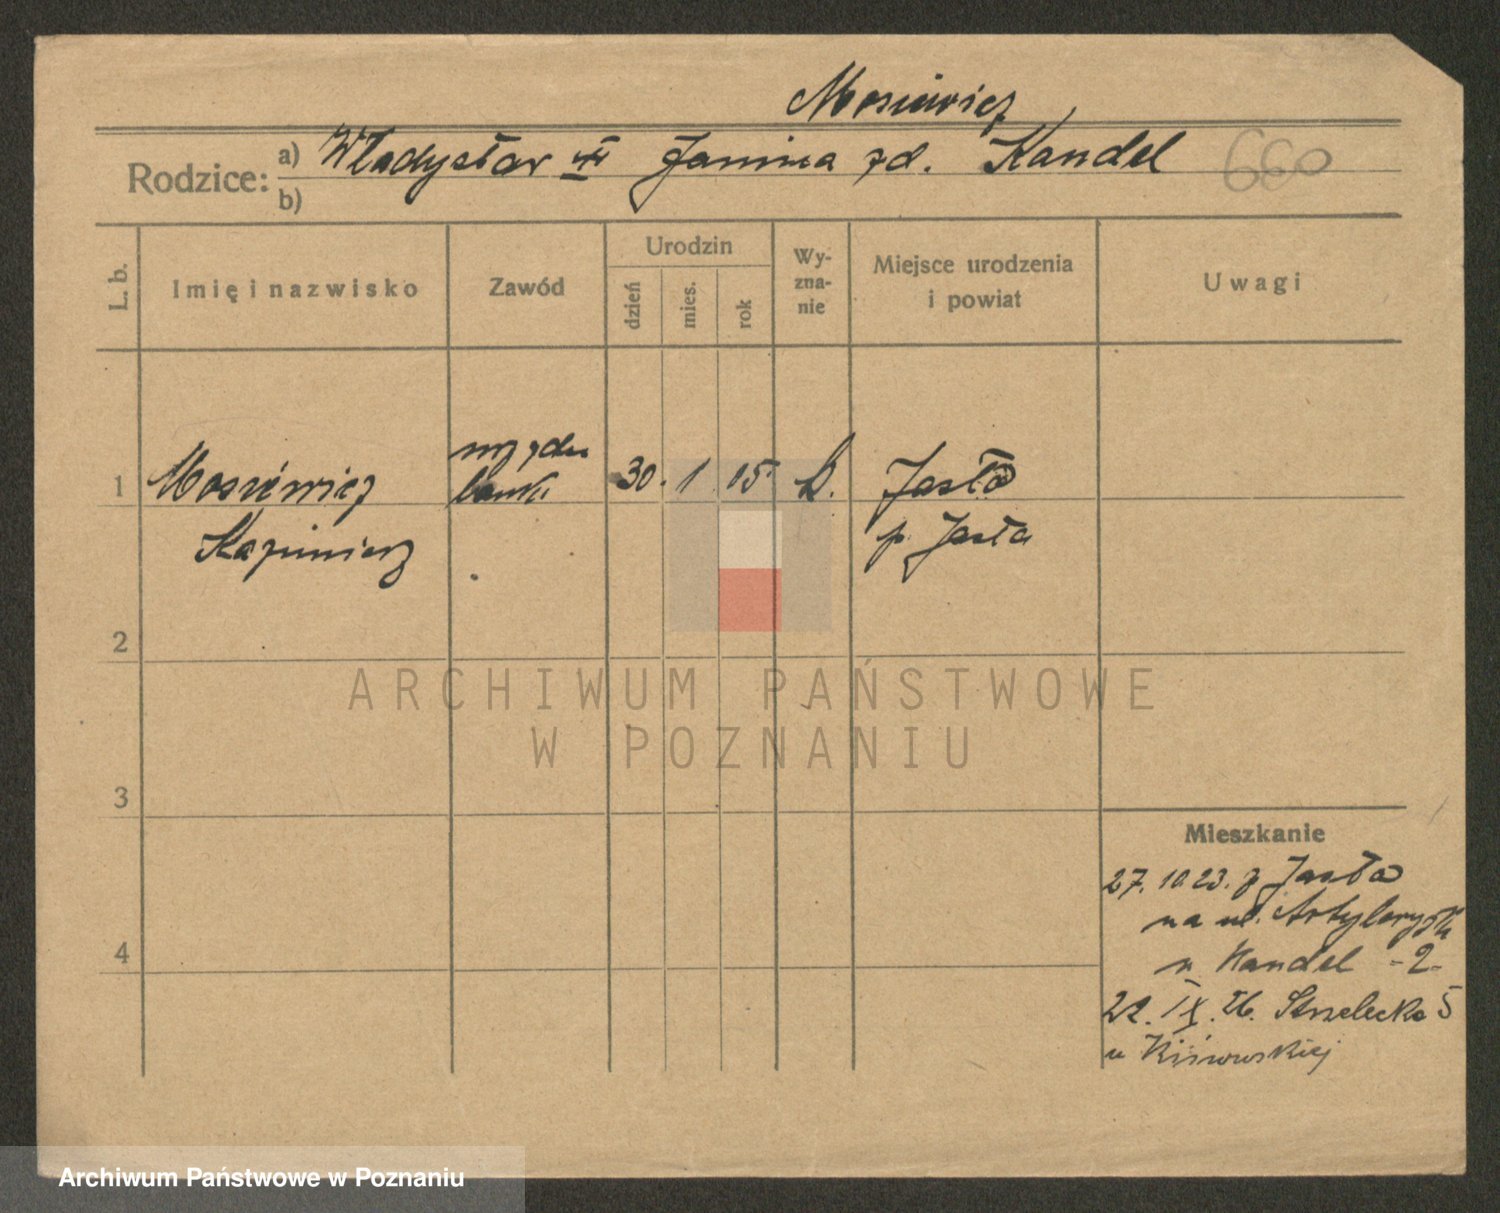 Mosiewicz
Rodzice: a) Władysław Janina zd. Kandel 660
b)
L. b. Imię i nazwisko Zawód Urodzin dzień mies. rok Wyzna-nie Miejsce urodzenia i powiat Uwagi
1 Mosiewicz urzędn 30. 1 15 k. Jasło
Kazimierz banku p. Jasło
2
ARCHIWUM PAŃSTWOWE
W POZNANIU
3
Mieszkanie
27. 10 23. z Jasła
na ul. Artyleryjsk
4
u Kandel -2-
22. IX. 26. Strzelecka 5
u
Archiwum Państwowe w Poznaniu